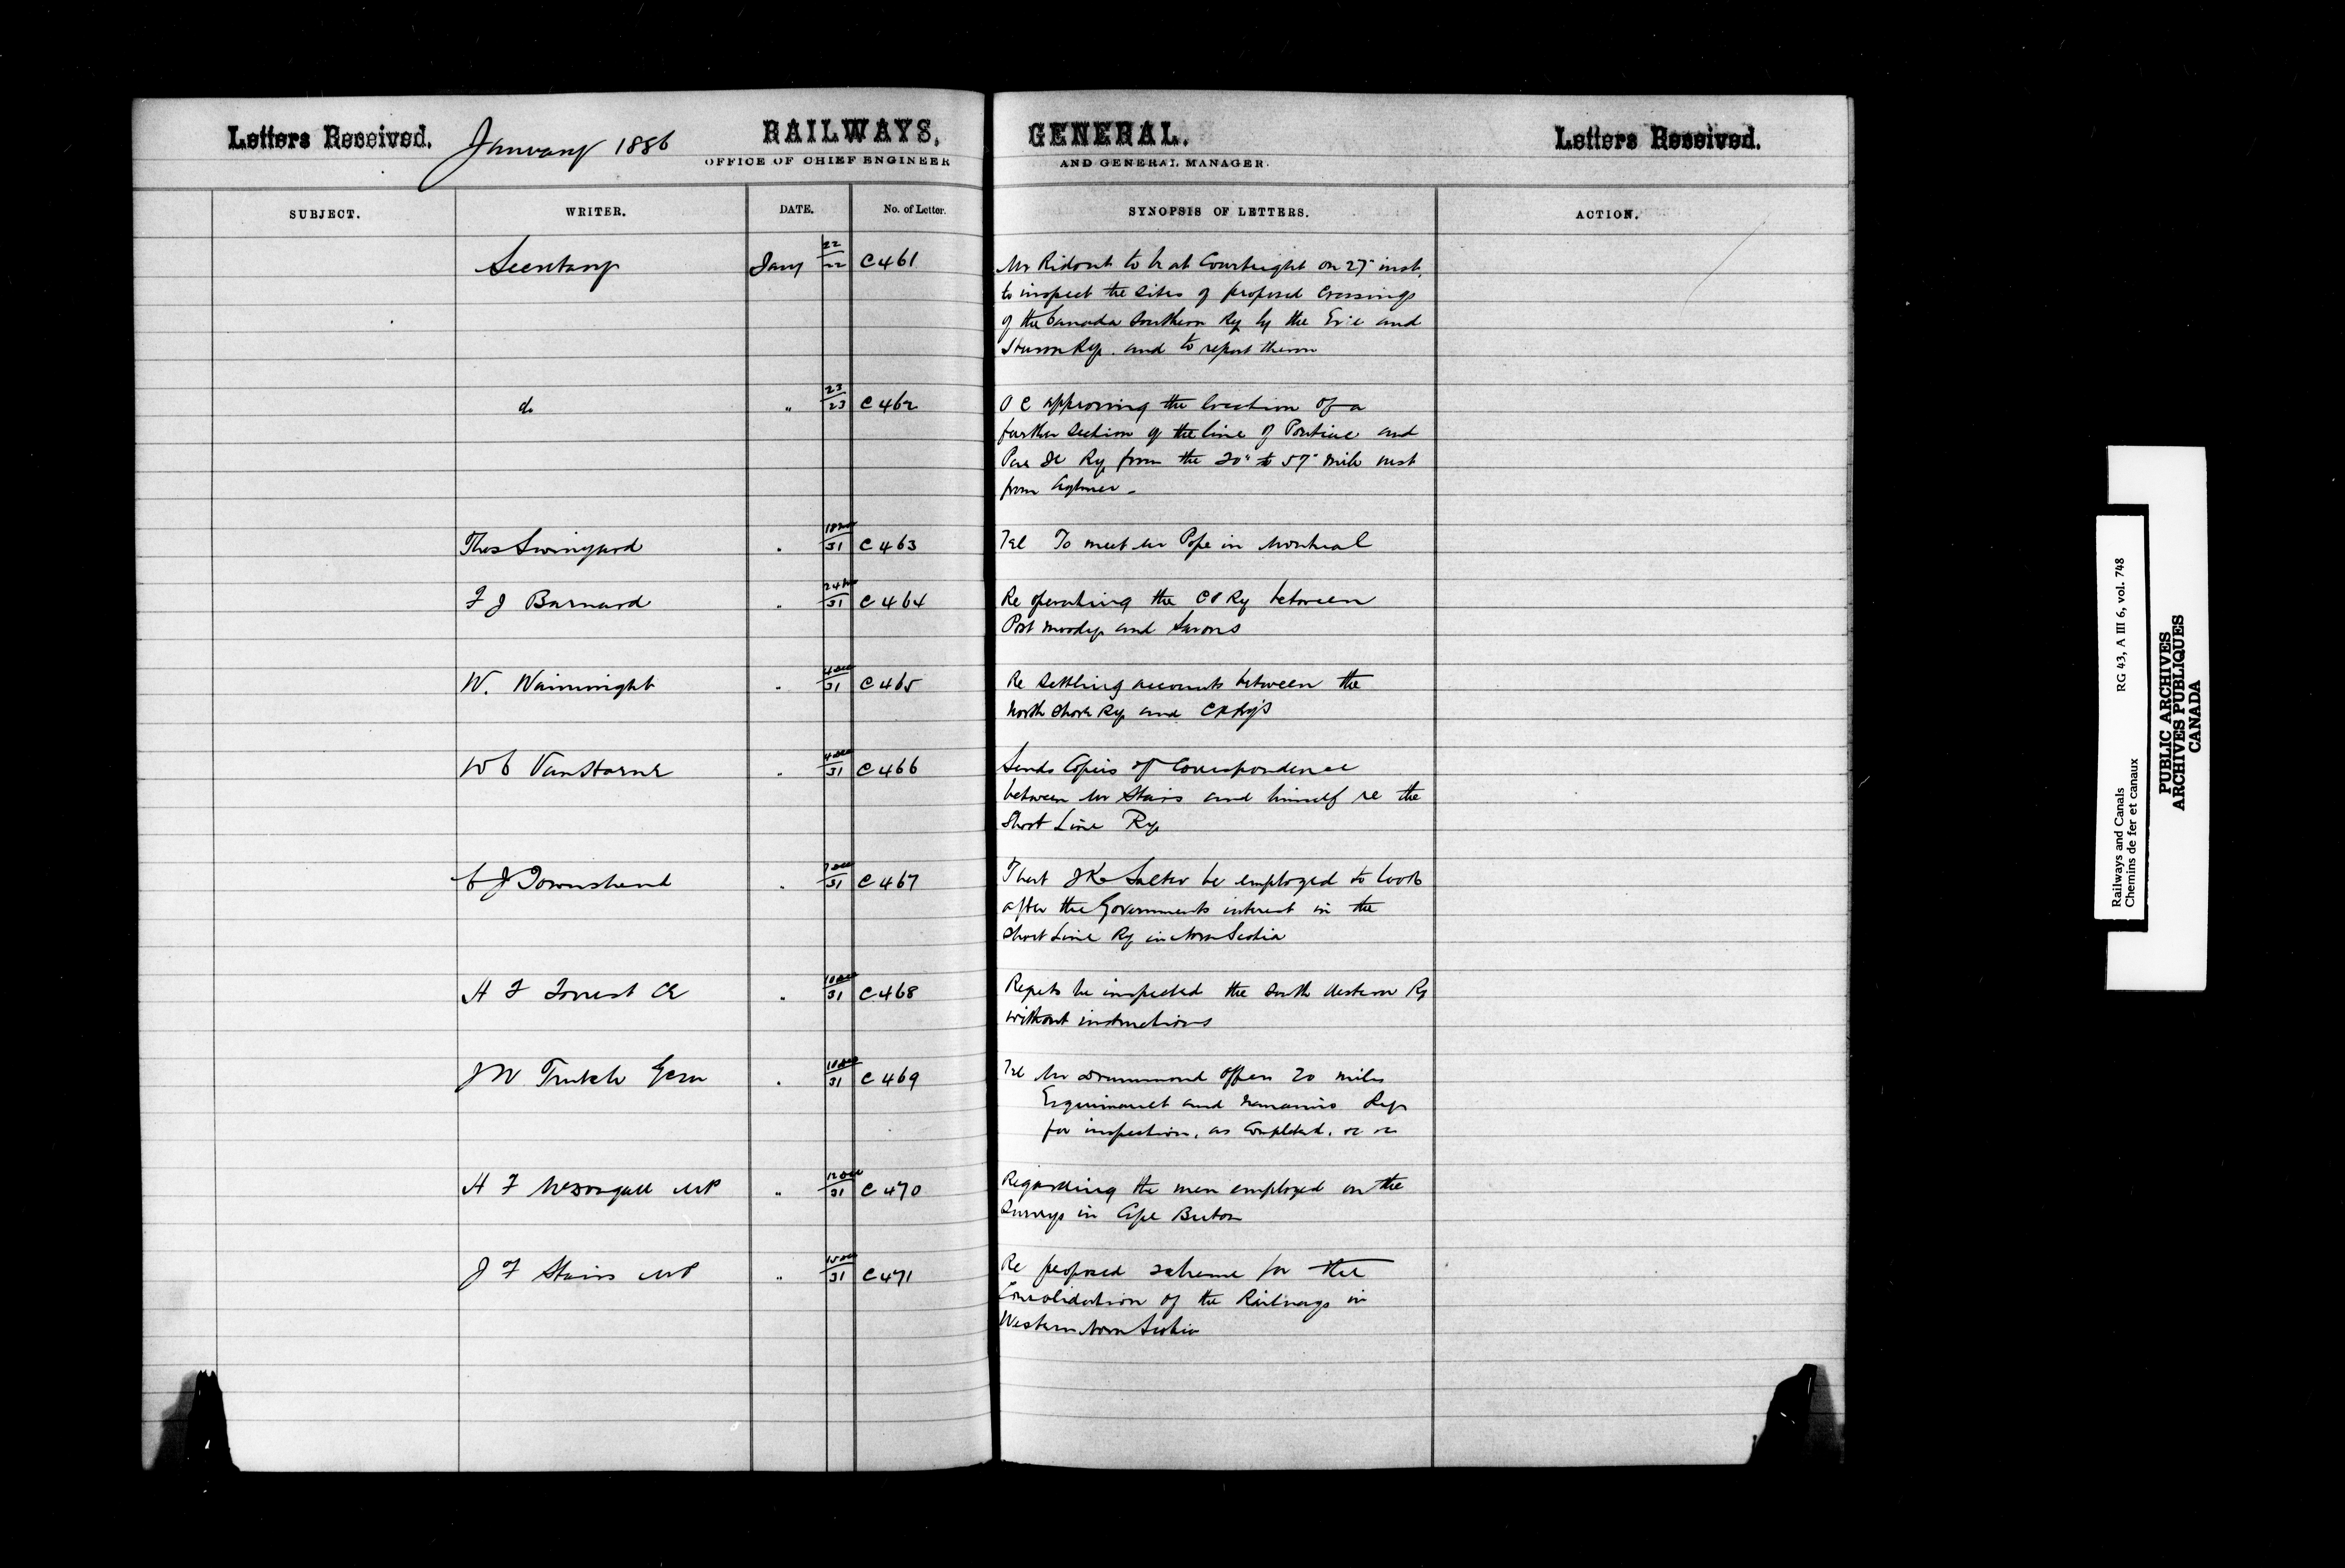 Letters Received. January 1886 RAILWAYS, GENERAL. Letters Received.
OFFICE OF CHIEF ENGINEER AND GENERAL MANAGER.
SUBJECT. WRITER. DATE. No. of Letter. SYNOPSIS OF LETTERS. ACTION.
Secretary Jany 22/22 C461 Mr Ridout to be at Courtright on 27" inst.
to inspect the sites of proposed crossings
of the Canada Southern Ry by the Erie and
Huron Ry. and to report thereon
do " 23/23 C462 O C approving the location of a
further section of the line of Pontiac and
Pac Jc Ry from the 20" to 57" mile west
from Aylmer -
Thos Swinyard " 18 Nov/31 C463 Tel To meet Mr Pope in Montreal
F J Barnard " 24 Nov/31 C464 Re operating the CPRy between
Port Moody and Savons
W. Wainwright " 4 Dec/31 C465 Re settling accounts between the
North Shore Ry and CRRy's
W C Van Horne " 4 Dec/31 C466 Sends Copies of Correspondence
between Mr Stairs and himself re the
Short Line Ry
C J Townshend " 7 Dec/31 C467 That J K Salter be employed to look
after the Governments interest in the
Short Line Ry in Nova Scotia
H F Forrest CE " 10 Dec/31 C468 Regrets he inspected the South Western Ry
without instructions
J W Trutch Gov " 10 Dec/31 C469 Tel Mr Drummond offers 20 miles
Esquimault and Nanaimo Ry
for inspection, as completed, &c &c
H F McDougall MP " 12 Dec/31 C470 Regarding the men employed on the
Surveys in Cape Breton
J F Stairs MP " 15 Dec/31 C471 Re proposed scheme for the
Consolidation of the Railways in
Western Nova Scotia
Railways and Canals RG 43, A III 6, vol. 748
Chemins de fer et canaux
PUBLIC ARCHIVES
ARCHIVES PUBLIQUES
CANADA